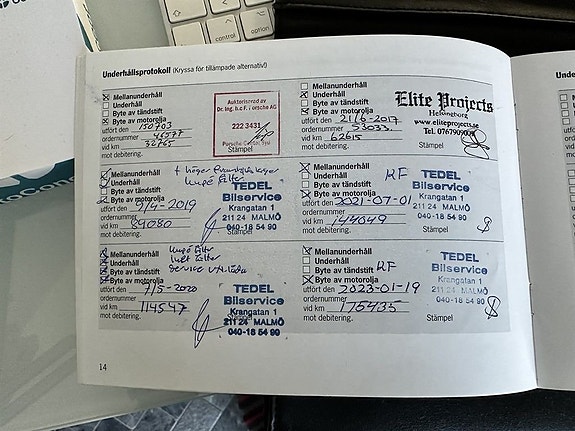 Underhållsprotokoll (Kryssa för tillämpade alternativ!)
Mellanunderhåll
Underhåll
Byte av tändstift
Byte av motorolja
utfört den 150703
ordernummer 46577
vid km 32765
mot debitering.
Stämpel
Auktoriserad av
Dr. Ing. h.c F. Porsche AG
222 3431
Mellanunderhåll
Underhåll
Byte av tändstift
Byte av motorolja
utfört den 21/6-2017
ordernummer 53033
vid km 62615
mot debitering.
Stämpel
Elite Projects
Helsingborg
www.eliteprojects.se
Tel. 0767909009
Mellanunderhåll
Underhåll
Byte av tändstift
Byte av motorolja
utfört den 9/4-2019
ordernummer
vid km 89080
mot debitering.
Kupé filter
TEDEL
Bilservice
Krangatan 1
211 24 MALMÖ
040-18 54 90
Mellanunderhåll
Underhåll
Byte av tändstift
Byte av motorolja
utfört den 2021-07-01
ordernummer
vid km 144049
mot debitering.
Stämpel
KF
TEDEL
Bilservice
Krangatan 1
211 24 MALMÖ
040-18 54 90
Mellanunderhåll
Underhåll
Byte av tändstift
Byte av motorolja
utfört den 7/5-2020
ordernummer
vid km 114547
mot debitering.
Kupé filter
luft filter
Service
TEDEL
Bilservice
Krangatan 1
211 24 MALMÖ
040-18 54 90
Mellanunderhåll
Underhåll
Byte av tändstift
Byte av motorolja
utfört den 2023-01-19
ordernummer
vid km 175435
mot debitering.
Stämpel
KF
TEDEL
Bilservice
Krangatan 1
211 24 MALMÖ
040-18 54 90
14